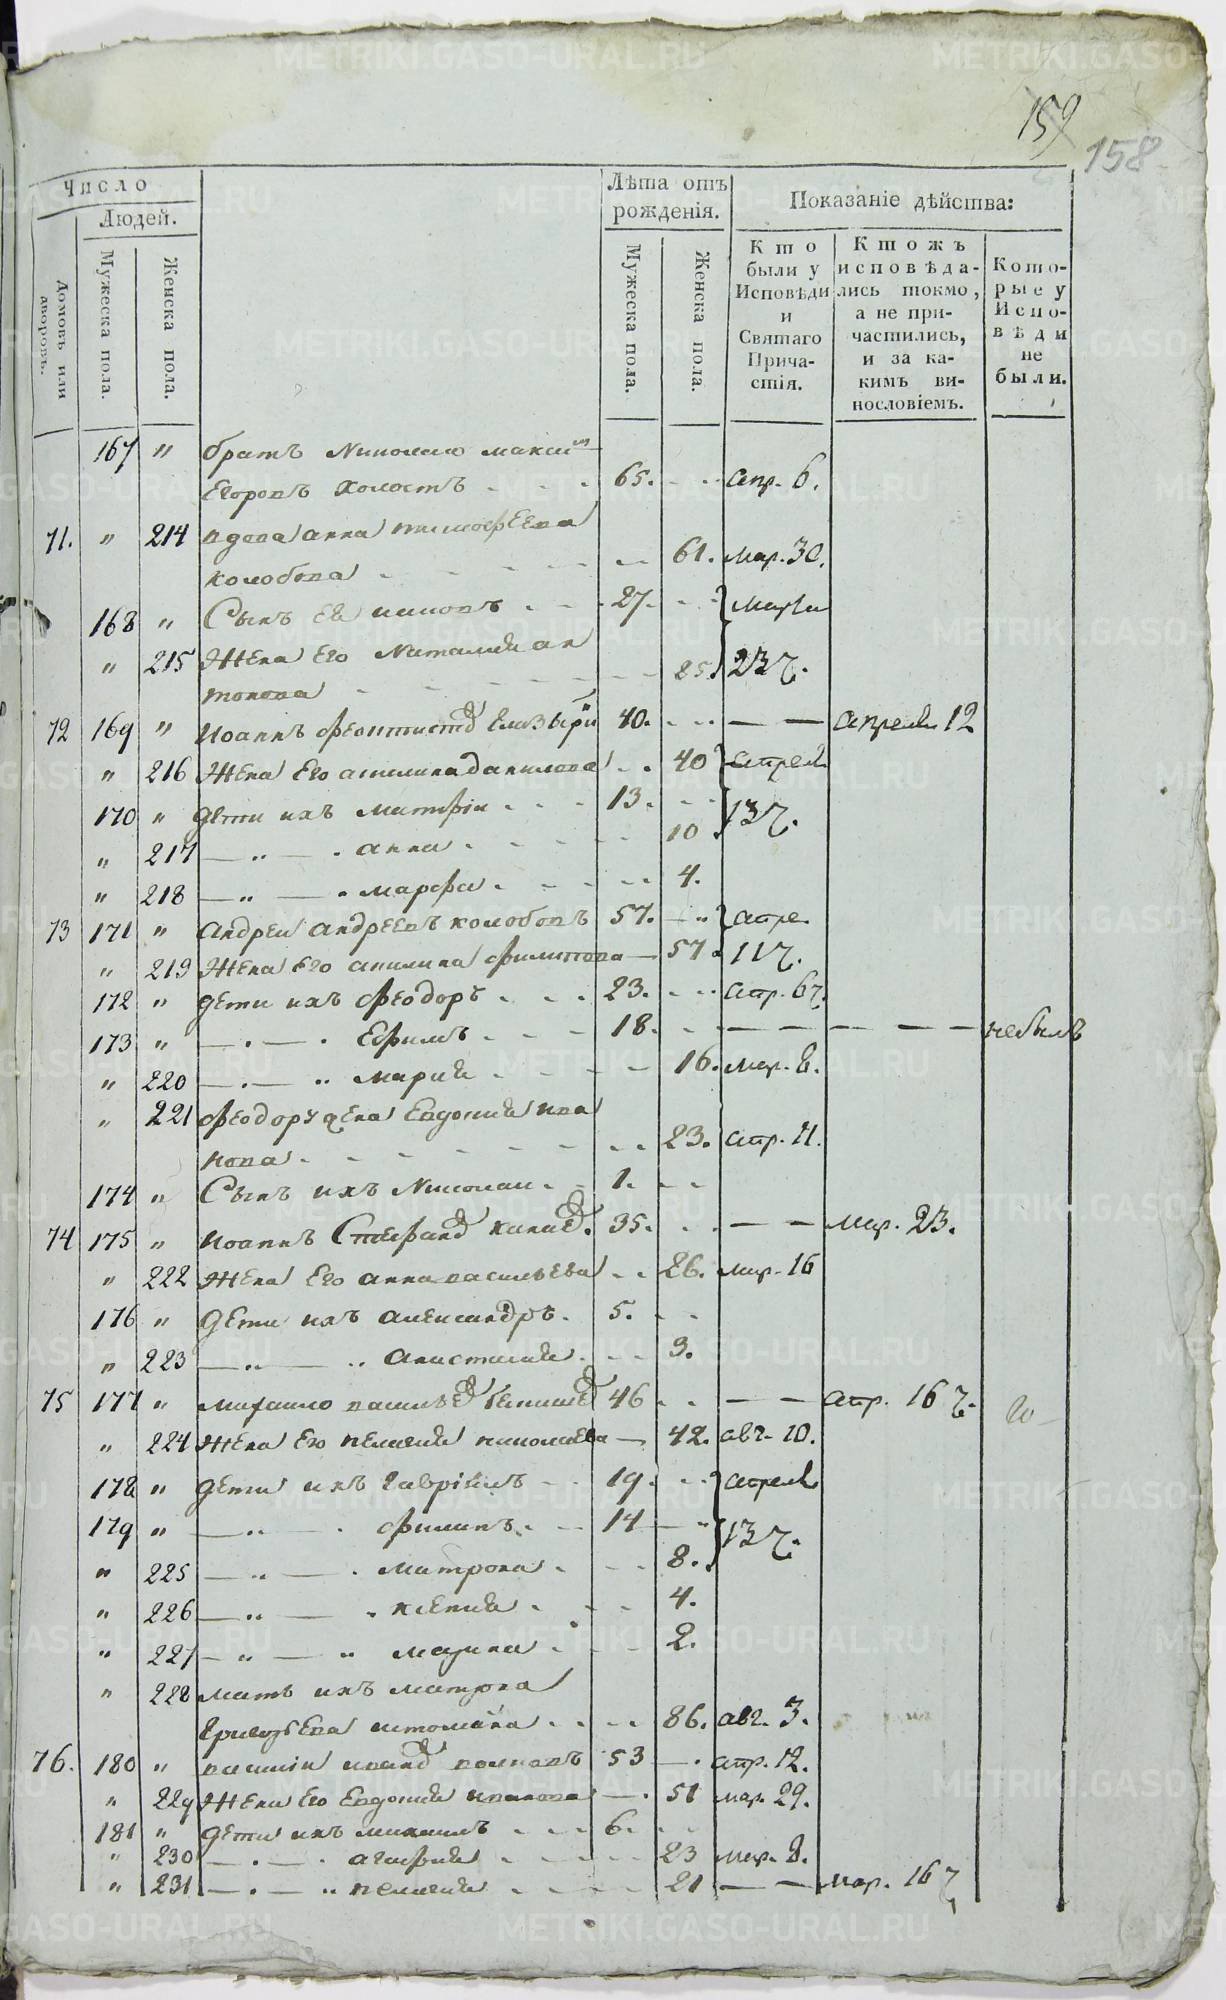 159
158
Число
Людей.
Домовъ или дворовъ.
Мужеска пола.
Женска пола.
Лѣта отъ рожденія.
Мужеска пола.
Женска пола.
Показаніе дѣйства:
Кто были у Исповѣди и Святаго Причастія.
Ктожъ исповѣдались токмо, а не причастились, и за какимъ винословіемъ.
Которые у Исповѣди не были.
167 " братъ
Егоровъ холостъ 65. апр. 6.
71. " 214 вдова анна тимофеева
колобова 61. мар. 30.
168 " Сынъ ея 27. марта
" 215 Жена Его Наталия ан
тонова 25. 23 ч.
72 169 " Иоаннъ 40. апреля 12
" 216 Жена Его акилина данилова 40 апреля
170 " дети ихъ 13. 13 ч.
" 217 — " — анна 10
" 218 — " — марфа 4.
73 171 " андреи андреевъ колобовъ 57. апре.
" 219 Жена Его акилина филипова 57 11 ч.
172 " дети ихъ феодоръ 23. апр. 6 ч.
173 " — . — Ефимъ 18. — — — — — небылъ
" 220 — . — " мария 16. мар. 8.
" 221 феодору жена Евдокия ива
нова 23. апр. 11.
174 " Сынъ ихъ Николаи 1.
74 175 " Иоаннъ 35. — — мар. 23.
" 222 Жена Его анна васильева 26. мар. 16
176 " дети ихъ александръ 5.
" 223 — " — " анастасия 3.
75 177 " михаило 46 — — апр. 16 ч.
" 224 Жена Его пелагия николаева 42. авг. 10.
178 " дети ихъ гаврiилъ 19. апреля
179 " — " — филипъ 14 13 ч.
" 225 — " — матрона 8.
" 226 — " — ксения 4.
" 227 — " — " марина 2.
" 228 мать ихъ матрона
86. авг. 3.
76. 180 " василiи 53 апр. 12.
" 229 Жена Его Евдокия иванова 51 мар. 29.
181 " дети ихъ михаилъ 6.
" 230 — . — агафия 23 мар. 8.
" 231 — . — " пелагия 21 — — мар. 16 ч
METRIKI.GASO-URAL.RU